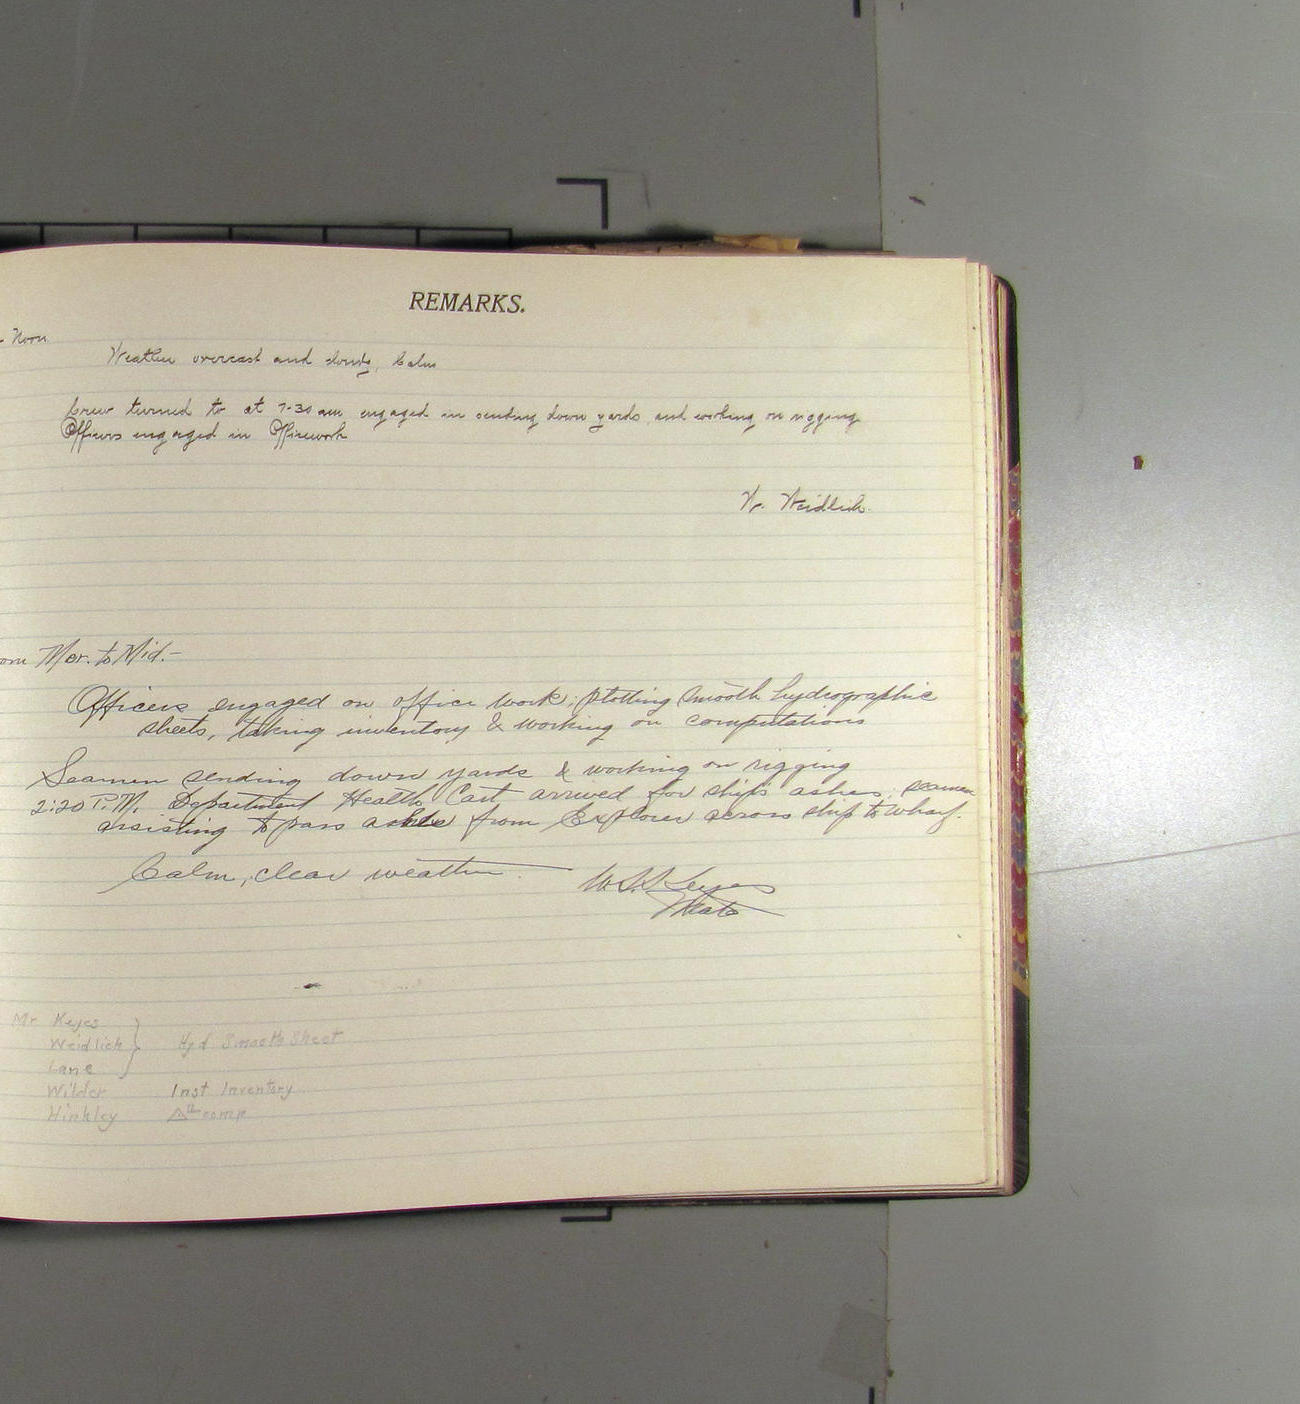 REMARKS.
Noon
Weather overcast and cloudy, Calm
Crew turned to at 7-30 am engaged in sending down yards, and working on rigging
Officers engaged in Officework
W. Weidlich.
om Mer. to Mid.-
Officers engaged on office work: plotting smooth hydrographic
sheets, taking inventory & working on computations
Seamen sending down yards & working on rigging
2:20 P.M. Department Health Cart arrived for ship's ashes, seamen
assisting to pass ashes from Explorer across ship to wharf.
Calm, clear weather.
W.S.S. Keyes
Mate
Mr Keyes
Weidlich } Hyd Smooth Sheet
Lane
Wilder Inst Inventory
Hinkley Δⁿ comp